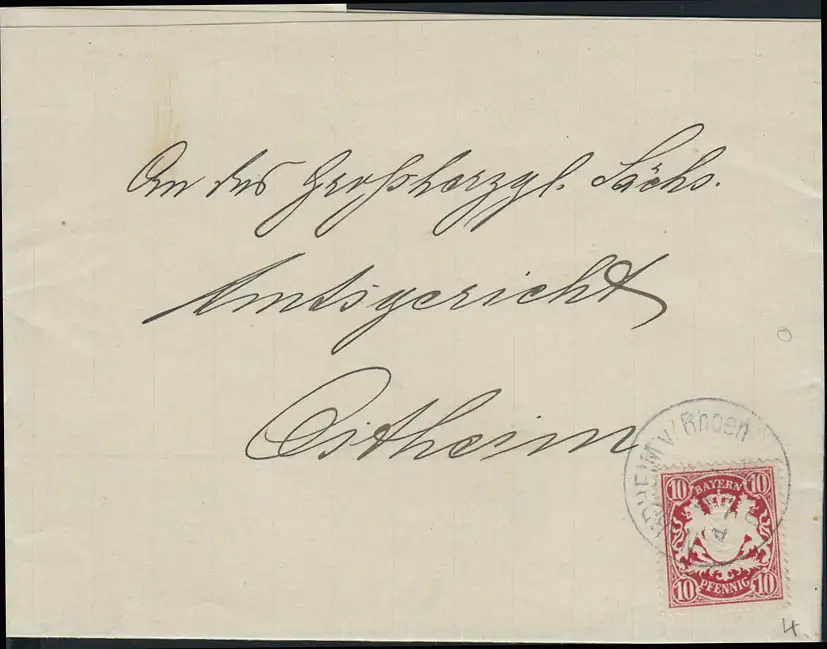 An das Großherzgl. Sächs.
Amtsgericht
Ostheim
HEIM v/Rhoen
10 BAYERN 10
10 PFENNIG 10
4